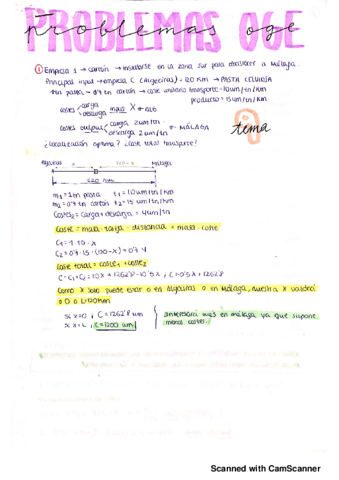 PROBLEMAS OGE
problemas oge
① Empresa 1 → cartón → instalarse en la zona sur para abastecer a Málaga.
Principal input → empresa C (Algeciras) = 120 km → PASTA CELULOSA
1tn pasta → 0'7 tn cartón → coste unitario transporte: 10um/tn/km
producto = 15um/tn/km
costes carga descarga input X
costes output carga 2um/tn. descarga 2um/tn → MÁLAGA
¿Localización óptima? ¿Coste total transporte?
tema 9
Algeciras x Málaga
120 km
m1 = 1tn pasta t1 = 10um/tn/km
m2 = 0'7 tn cartón t2 = 15um/tn/km
Costes2 = carga + descarga = 4um/tn
Coste = masa · tarifa · distancia + masa · coste
C1 = 1 · 10 · x
Coste total = coste1 + coste2
C = C1 + C2 = 10x + 1262'8 - 10'5x ; C = -0'5x + 1262'8
Como x solo puede estar o en Algeciras o en Málaga, nuestra x valdrá
0 O L=120km
si x=0 ; C = 1262'8 um
si x=L ; C = 1200 um
interesará más en málaga ya que supone
menos costes.
Scanned with CamScanner